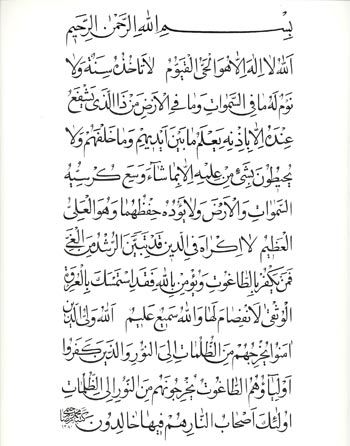 بِسْمِ اللهِ الرَّحْمٰنِ الرَّحِيمِ
اَللهُ لَا اِلٰهَ اِلَّا هُوَ الْحَيُّ الْقَيُّومُ لَا تَأْخُذُهُ سِنَةٌ وَلَا
نَوْمٌ لَهُ مَا فِي السَّمٰوَاتِ وَمَا فِي الْاَرْضِ مَنْ ذَا الَّذِي يَشْفَعُ
عِنْدَهُ اِلَّا بِاِذْنِهِ يَعْلَمُ مَا بَيْنَ اَيْدِيهِمْ وَمَا خَلْفَهُمْ وَلَا
يُحِيطُونَ بِشَيْءٍ مِنْ عِلْمِهِ اِلَّا بِمَا شَاءَ وَسِعَ كُرْسِيُّهُ
السَّمٰوَاتِ وَالْاَرْضَ وَلَا يَؤُدُهُ حِفْظُهُمَا وَهُوَ الْعَلِيُّ
الْعَظِيمُ لَا اِكْرَاهَ فِي الدِّينِ قَدْ تَبَيَّنَ الرُّشْدُ مِنَ الْغَيِّ
فَمَنْ يَكْفُرْ بِالطَّاغُوتِ وَيُؤْمِنْ بِاللهِ فَقَدِ اسْتَمْسَكَ بِالْعُرْوَةِ
الْوُثْقٰى لَا انْفِصَامَ لَهَا وَاللهُ سَمِيعٌ عَلِيمٌ اَللهُ وَلِيُّ الَّذِينَ
اٰمَنُوا يُخْرِجُهُمْ مِنَ الظُّلُمَاتِ اِلَى النُّورِ وَالَّذِينَ كَفَرُوا
اَوْلِيَاؤُهُمُ الطَّاغُوتُ يُخْرِجُونَهُمْ مِنَ النُّورِ اِلَى الظُّلُمَاتِ
اُولٰئِكَ اَصْحَابُ النَّارِ هُمْ فِيهَا خَالِدُونَ